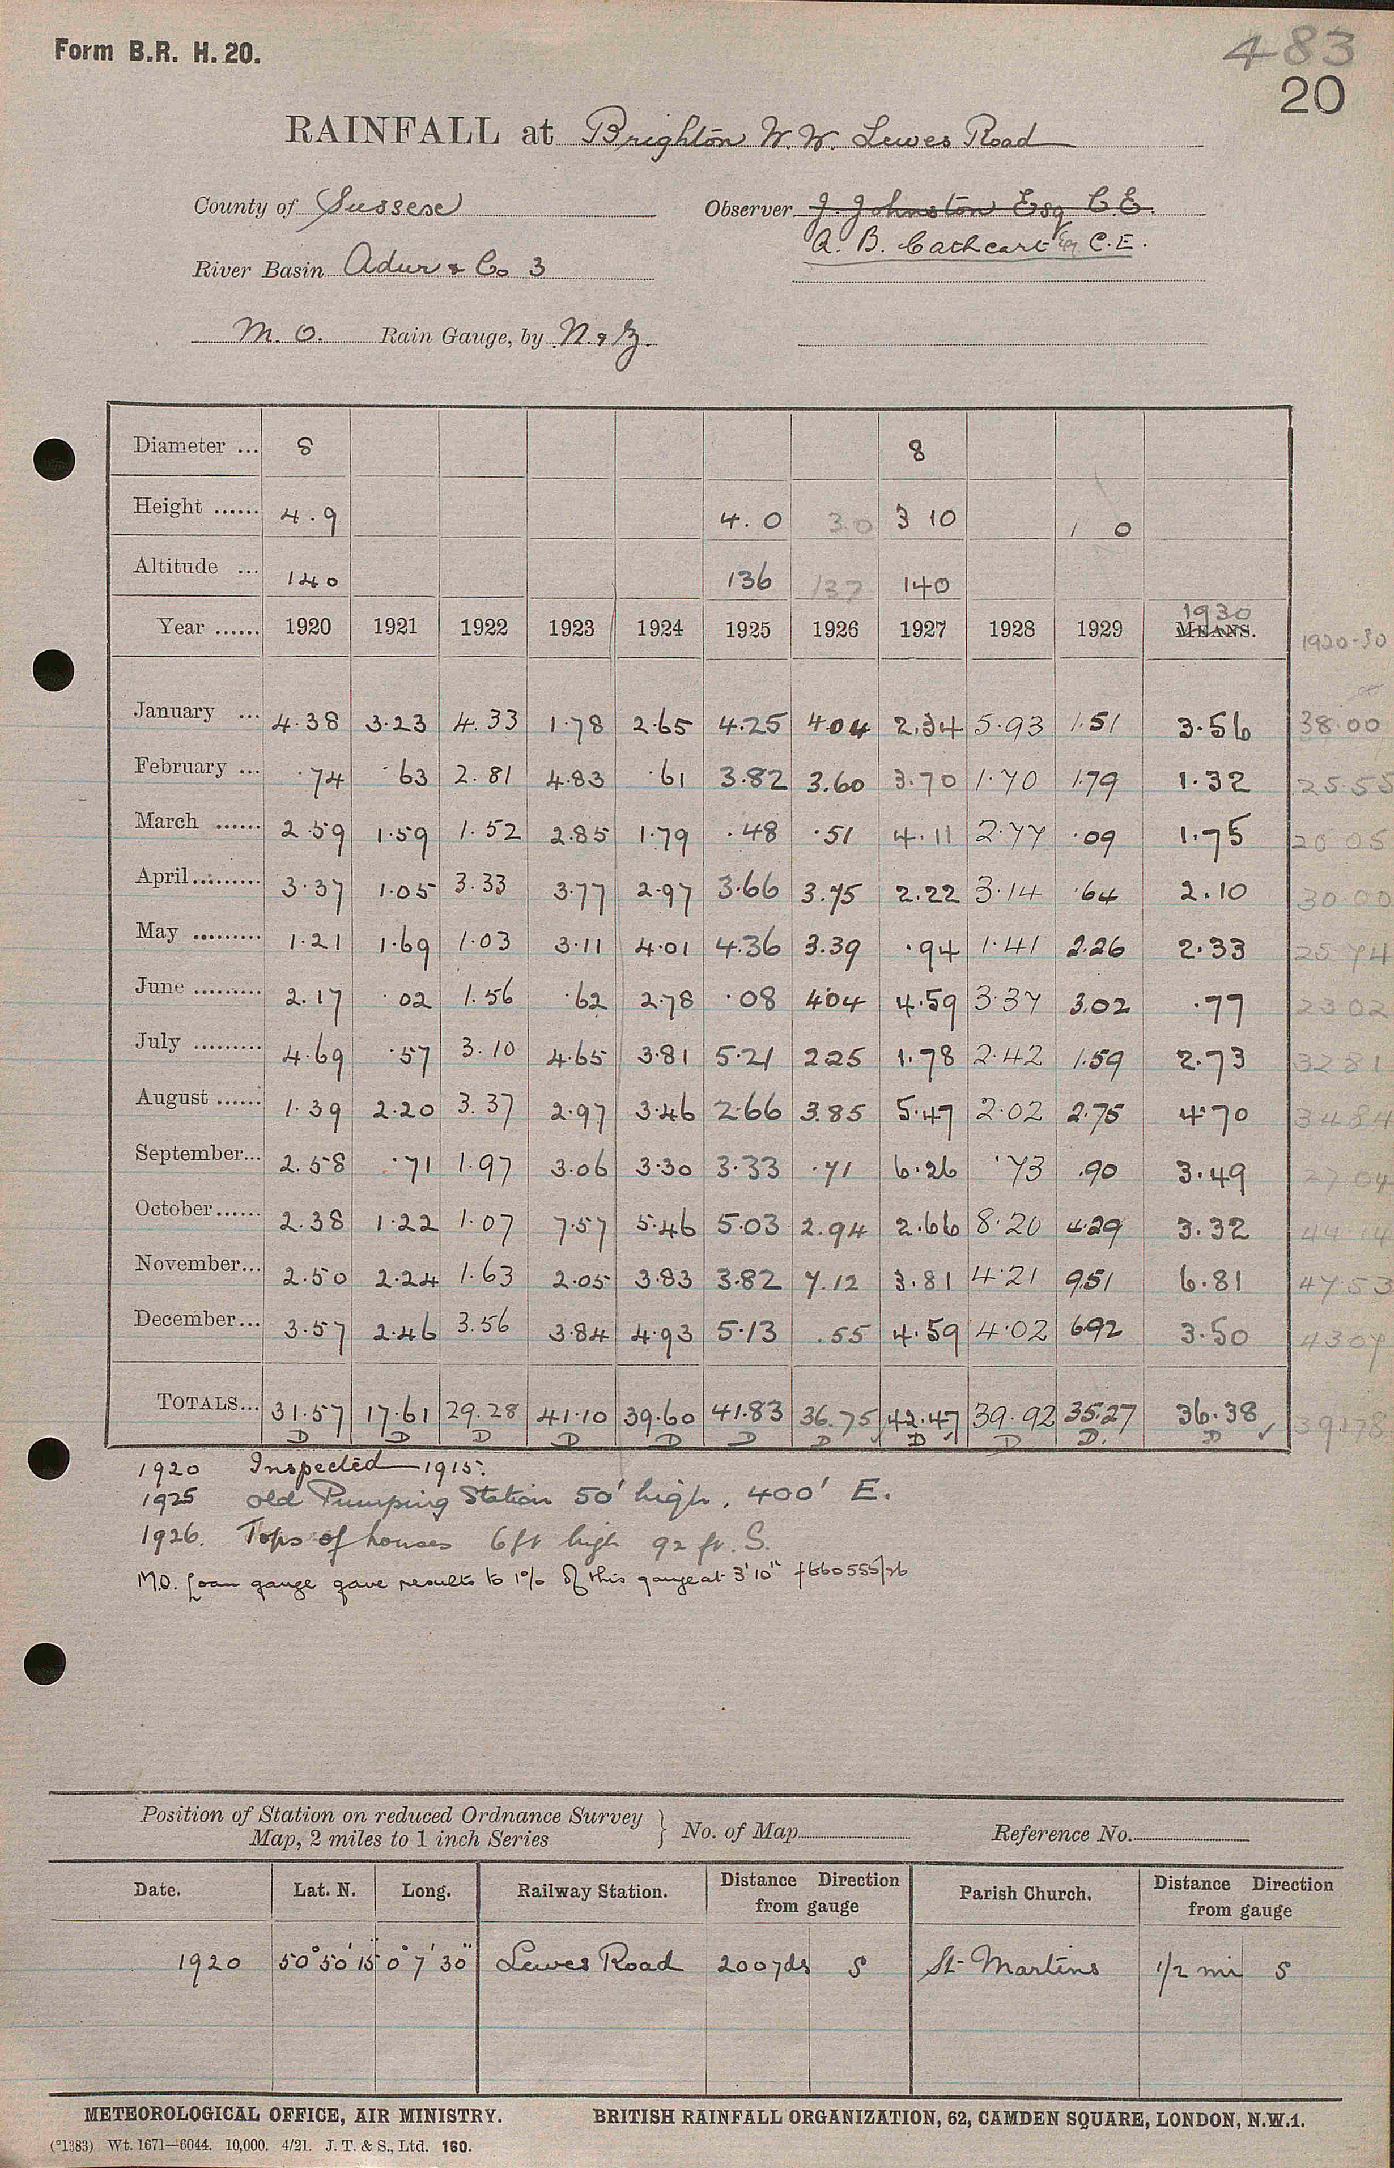 Form B.R. H. 20.
483
20
RAINFALL at Brighton W.W. Lewes Road
County of Sussex
Observer J. Johnston Esq C.E.
A. B. Cathcart Esq C.E.
River Basin Adur & Co 3
M. O. Rain Gauge, by N & Z.
Diameter ... 8 8
Height ...... 4.9 4.0 30 3 10 1 0
Altitude ... 140 136 137 140
Year ...... 1920 1921 1922 1923 1924 1925 1926 1927 1928 1929 1930 MEANS. 1920-30
January ... 4.38 3.23 4.33 1.78 2.65 4.25 4.04 2.34 5.93 1.51 3.56 38.00
February ... .74 .63 2.81 4.83 .61 3.82 3.60 3.70 1.70 1.79 1.32 25.55
March ...... 2.59 1.59 1.52 2.85 1.79 .48 .51 4.11 2.77 .09 1.75 20.05
April......... 3.37 1.05 3.33 3.77 2.97 3.66 3.75 2.22 3.14 .64 2.10 30.00
May ......... 1.21 1.69 1.03 3.11 4.01 4.36 3.39 .94 1.41 2.26 2.33 25.74
June ......... 2.17 .02 1.56 .62 2.78 .08 4.04 4.59 3.37 3.02 .77 23.02
July ......... 4.69 .57 3.10 4.65 3.81 5.21 2.25 1.78 2.42 1.59 2.73 32.81
August ...... 1.39 2.20 3.37 2.97 3.46 2.66 3.85 5.47 2.02 2.75 4.70 34.84
September... 2.58 .71 1.97 3.06 3.30 3.33 .71 6.26 .73 .90 3.49 27.04
October...... 2.38 1.22 1.07 7.57 5.46 5.03 2.94 2.66 8.20 4.29 3.32 44.14
November... 2.50 2.24 1.63 2.05 3.83 3.82 7.12 3.81 4.21 9.51 6.81 47.53
December... 3.57 2.46 3.56 3.84 4.93 5.13 .55 4.59 4.02 6.92 3.50 43.07
TOTALS... 31.57 17.61 29.28 41.10 39.60 41.83 36.75 42.47 39.92 35.27 36.38 391.78
D D D D D D D D D D. D
1920 Inspected 1915.
1925 Old Pumping Station 50' high, 400' E.
1926. Tops of houses 6ft high 92 ft. S.
M.O. Loan gauge gave results to 1% of this gauge at 3'10"
Position of Station on reduced Ordnance Survey
Map, 2 miles to 1 inch Series
No. of Map
Reference No.
Date. Lat. N. Long. Railway Station. Distance Direction from gauge Parish Church. Distance Direction from gauge
1920 50° 50' 15" 0° 7' 30" Lewes Road 200 yds S St Martins 1/2 mi S
METEOROLOGICAL OFFICE, AIR MINISTRY. BRITISH RAINFALL ORGANIZATION, 62, CAMDEN SQUARE, LONDON, N.W.1.
(*1383) Wt. 1671—6044. 10,000. 4/21. J. T. & S., Ltd. 160.